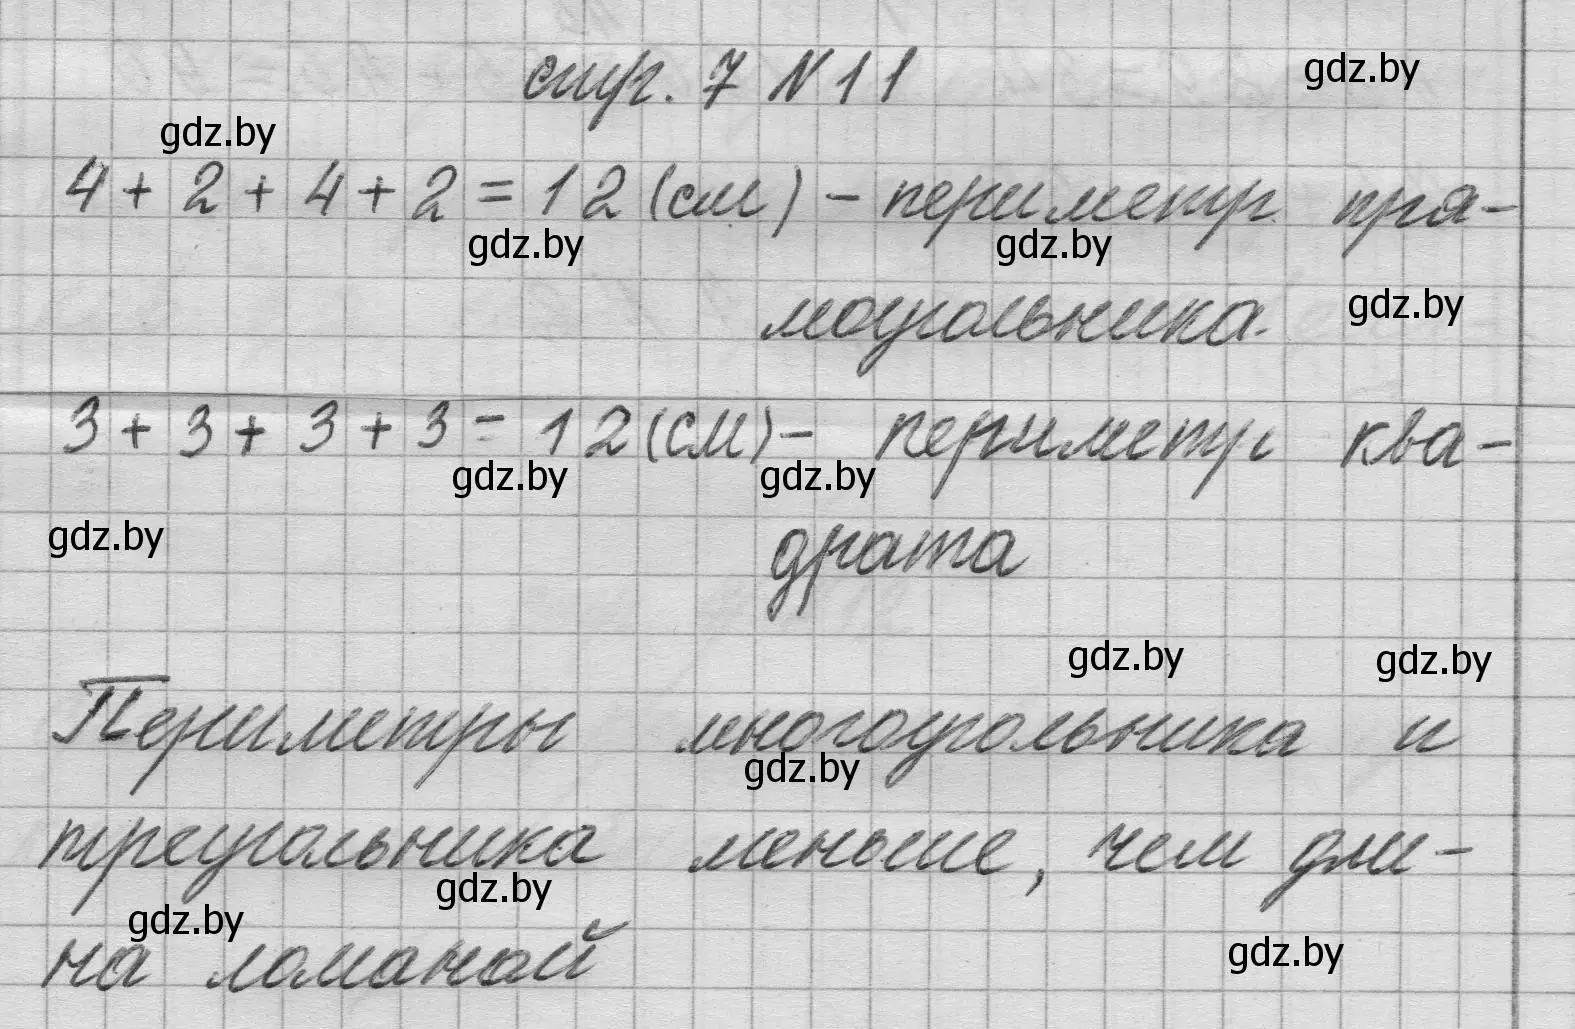 стр. 7 N 11 gdz.by
gdz.by
4 + 2 + 4 + 2 = 12 (см) - периметр пря-
gdz.by gdz.by
моугольника. gdz.by
3 + 3 + 3 + 3 = 12 (см) - периметр ква-
gdz.by gdz.by
gdz.by драта
gdz.by gdz.by
Периметры многоугольника и
gdz.by
треугольника меньше, чем дли-
gdz.by
gdz.by
на ломаной gdz.by